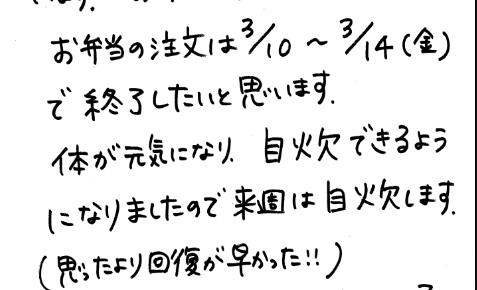 お弁当の注文は3/10～3/14(金)
で終了したいと思います.
体が元気になり、自炊できるよう
になりましたので来週は自炊します.
(思ったより回復が早かった!!)